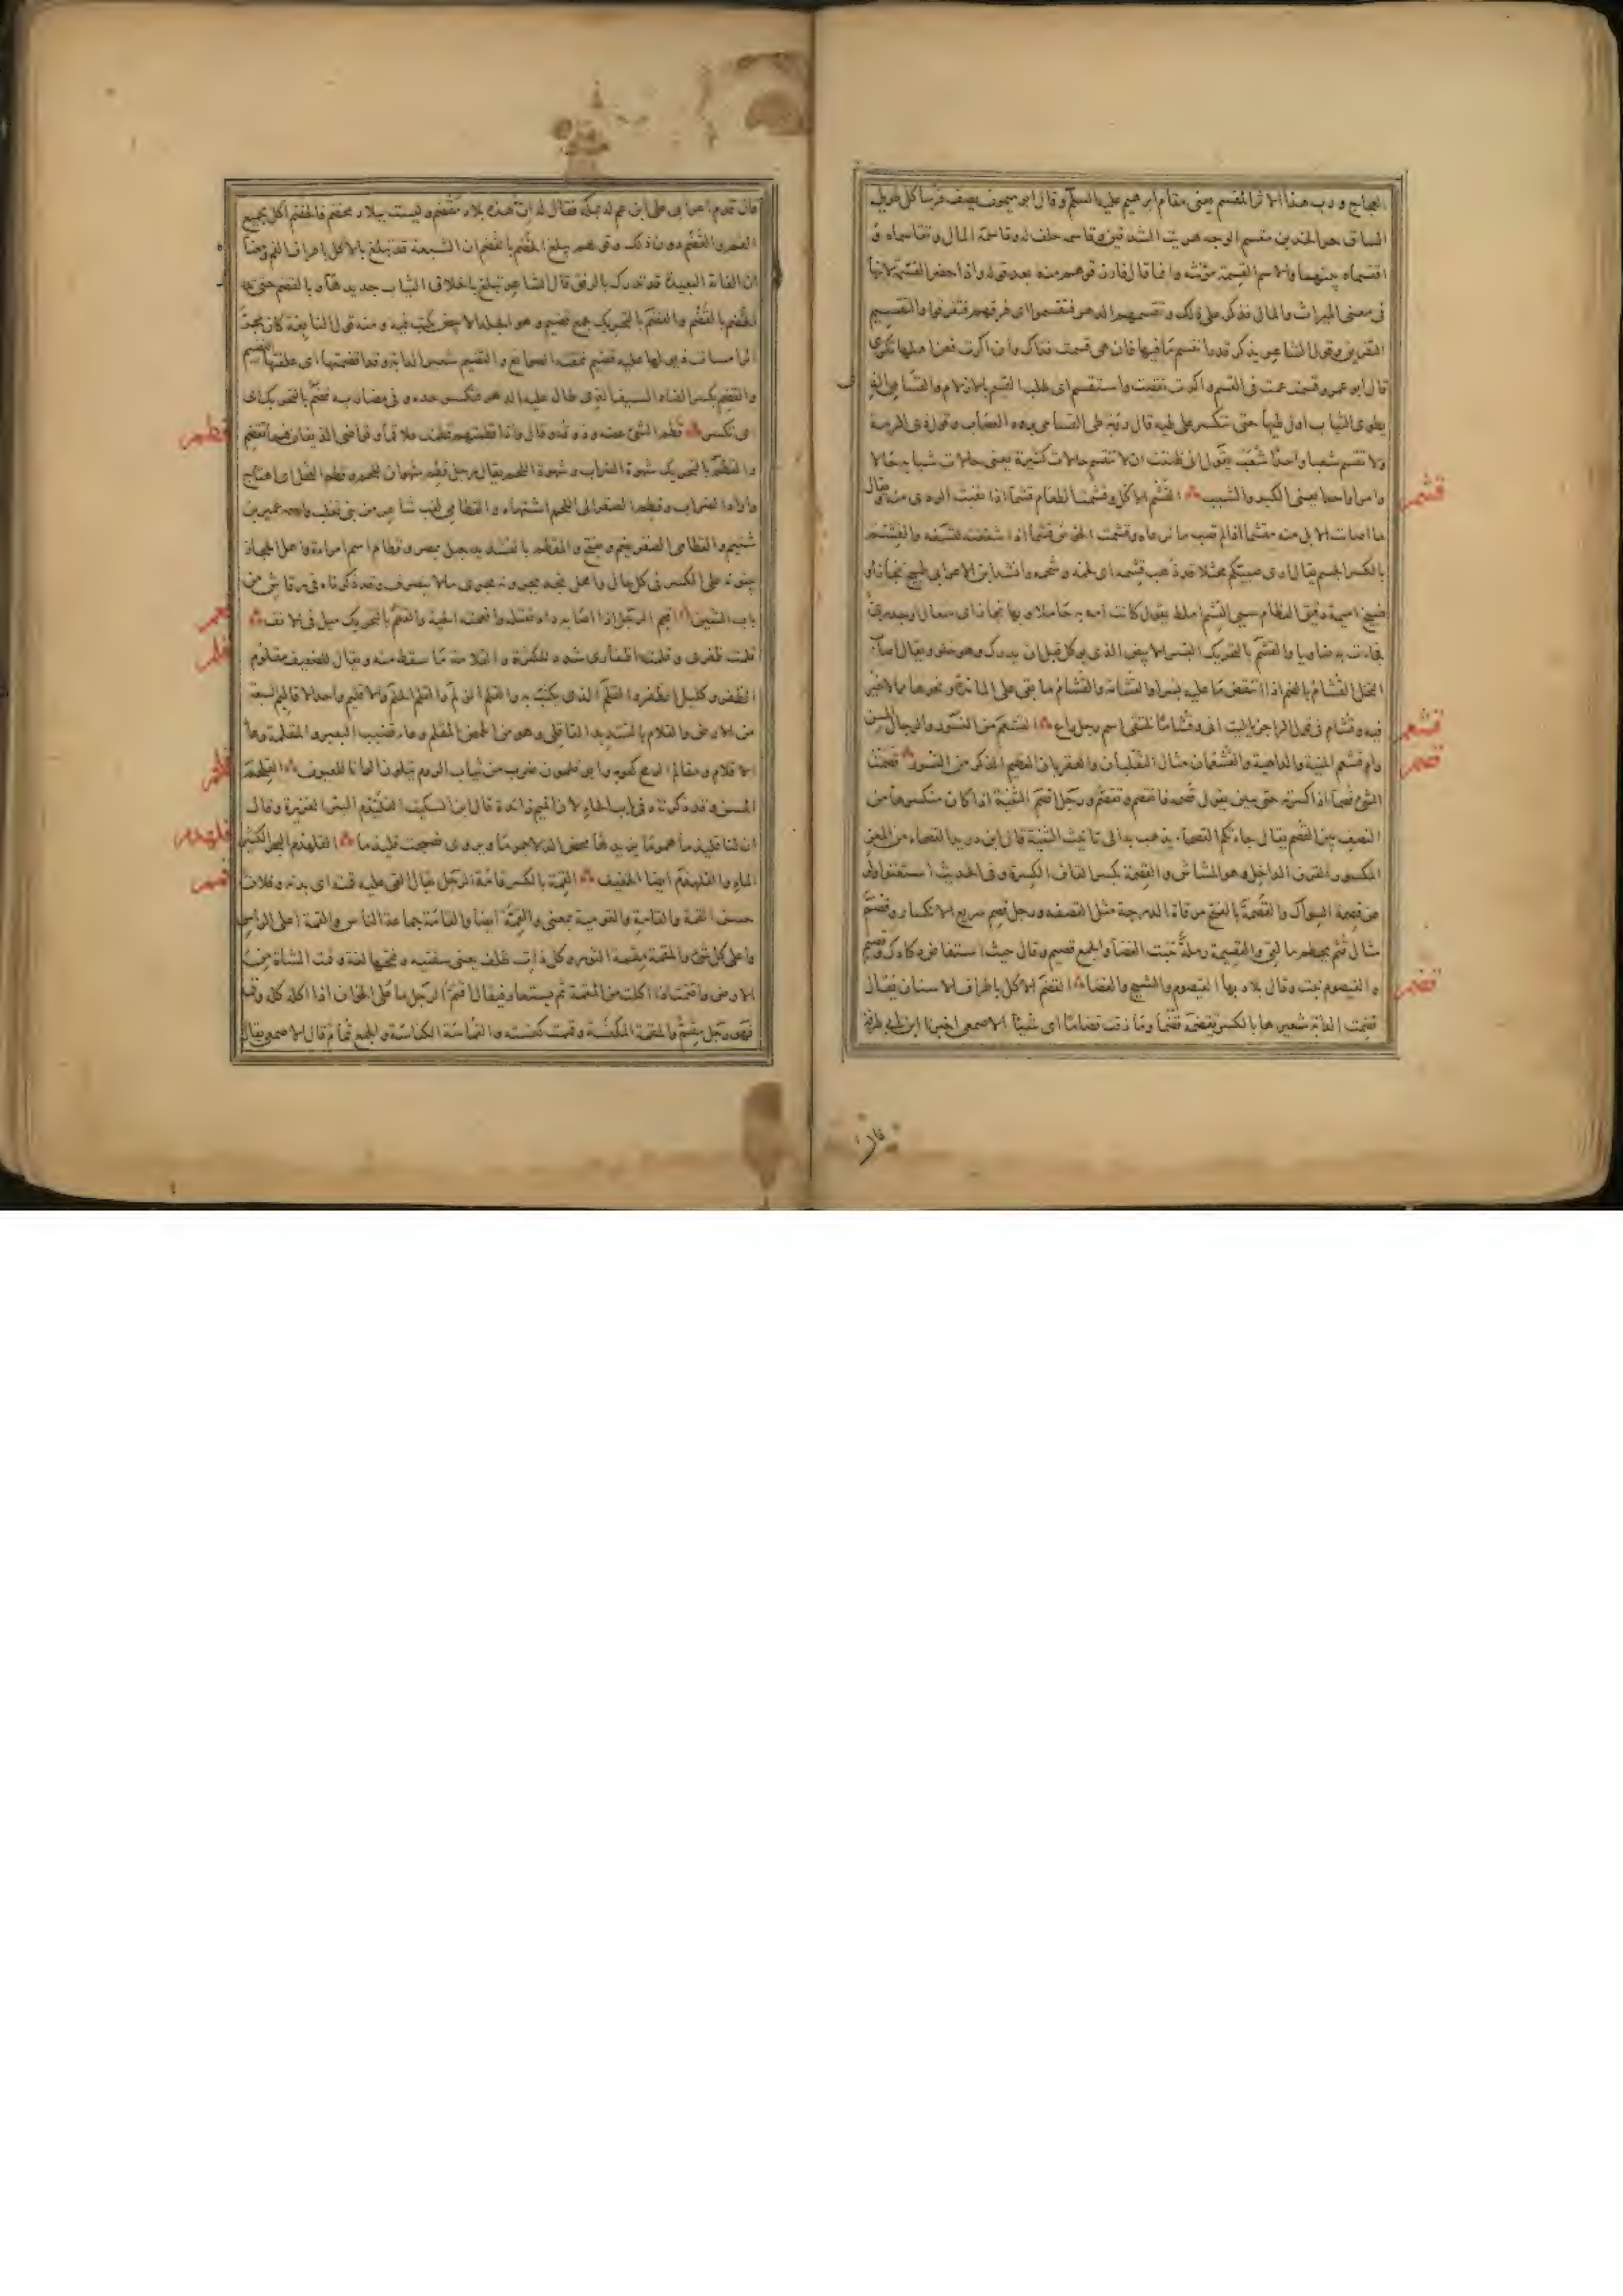 العجاج ورب هذا الاثر المقسم يعنى مقام ابرهيم عليه السلم وقال ابو ميمون يصف فرسا كل طويل
الساق حر الخدين مقسم الوجه هريت الشدقين وقاسمه حلف له وقاسمه المال وتقاسماه و
اقتسماه بينهما والاسم القسمة مؤنثة وانما قال فارزقوهم منه بعد قوله واذا حضر القسمة لانها
فى معنى الميراث والمال فذكر على ذلك وتقسمهم الدهر فتقسموا اى فرقهم فتفرقوا والتقسيم
التفريق وقول الشاعر يذكر قدرا تقسم ما فيها فان هى قسمت فذاك وان اكرت فعن اهلها تكرى
قال ابو عمرو قسمت عمت فى القسم واكرت نقصت واستقسم اى طلب القسم بالازلام والقسامى الذ
يطوى الثياب اول طيها حتى تتكسر على طيه قال رؤبة طى القسامى برود العصاب وقول ذى الرمة
ولا تقسم شعبا واحدا شعب يقول انى ظننت ان لا تنقسم حالات كثيرة يعنى حالات شبابه حالا
وامرا واحدا يعنى الكبر والشيب القشم الاكل وقشمت الطعام قشما اذا نفيت الردى منه ويقال
ما اصابت الابل منه مقشما اذا لم تصب ما ترعاه وقشمت الخوص قشما اذا شققته لتسفه والقشم
بالكسر الجسم يقال ارى صبيتكم مختلا قد ذهب قشمه اى لحمه وشحمه وانشد ابن الاعرابى طبيخ نحاز او
طبيخ اميهة دقيق العظام سيى القشم املط يقول كانت امه به حاملا وبها نحاز اى سعال او جدرى
فجاءت به ضاويا والقشم بالتحريك البسر الابيض الذى يوكل قبل ان يدرك وهو حلو ويقال اصاب
النخل القشام بالضم اذا انتقض ما عليه بسرا والقشامة والقشام ما بقى على المائدة ونحوها مما لا خير
فيه وقشام فى قول الراجز يا ليت انى وقشاما نلتقى اسم رجل راع القشعم من النسور والرجال المسن
وام قشعم المنية والداهية والقشعمان مثال الثعلبان والعقربان العظيم الذكر من النسور قصمت
الشى قصما اذا كسرته حتى يبين يقول قصمه فانقصم وتقصم ورجل اقصم الثنية اذا كان منكسرها من
النصف بين القصم يقال جاءتكم القصماء يذهب بدا الى تانيث الثنية قال ابن دريد القصماء من المعز
المكسورة القرن الداخل وهو المشاش والقصمة بكسر القاف الكسرة وفى الحديث استغنوا ولو
عن قصمة السواك والقصمة بالفتح مرقاة الدرجة مثل القصفة ورجل قصم سريع الانكسار وقصم
مثال قثم يحطم ما لقى والقصيمة رملة تنبت الغضا والجمع قصيم وقال حيث استفاض دكادك وقصيم
والقيصوم نبت وقال بلاد بها القيصوم والشيح والغضا القضم الاكل باطراف الاسنان يقال
قضمت الدابة شعيرها بالكسر تقضمه قضما وما ذقت قضاما اى شيئا الاصمعى اخبرنا ابن ابى طرفة
قشم
قشعم
قصم
قضم
قال
قال قدم اعرابى على ابن عم له بمكة فقال له ان هذه بلاد مقضم وليست ببلاد مخضم فالخضم اكل بجميع
الفم والقضم دون ذلك وقولهم يبلغ الخضم بالقضم ان الشبعة قد تبلغ بالاكل باطراف الفم ومعناه
ان الغاية البعيدة قد تدرك بالرفق قال الشاعر تبلغ باخلاق الثياب جديدها وبالقضم حتى تدرك
الخضم بالقضم والقضم بالتحريك جمع قضيم وهو الجلد الابيض يكتب فيه ومنه قول النابغة كان مجر
الرامسات ذيولها عليه قضيم نمقته الصوانع والقضيم شعير الدابة وقد اقضمتها اى علفتها القضيم
والقضم بكسر الضاد السيف الذى طال عليه الدهر فتكسر حده وفى مضاربه قضم بالتحريك اى
اى تكسر قطم الشى عضه وذوقه وقال واذا قطمتهم قطمت علاقما وقواضى الذيفان فيما تقطم
والقطم بالتحريك شهوة الضراب وشهوة اللحم يقال رجل قطم شهوان للحم وقطم الفحل اى اهتاج
واراد الضراب وقطم الصقر الى اللحم اشتهاه والقطامى لقب شاعر من بنى تغلب واسمه عمير بن
شييم والقطامى الصقر يضم ويفتح والمقطم بالتشديد جبل بمصر وقطام اسم امراة واهل الحجاز
يبنونه على الكسر فى كل حال واهل نجد يجرونه مجرى ما لا ينصرف وقد ذكرناه فى رقاش من
باب الشين اقعم الرجل اذا اصابه داء فقتله واقعمته الحية والقعم بالتحريك ميل فى الانف
قلمت ظفرى وقلمت اظفارى شدد للكثرة والقلامة ما سقط منه ويقال للضعيف مقلوم
الظفر وكليل الظفر والقلم الذى يكتب به والقلم الزلم والقلم الجلم والاقليم واحد الاقاليم السبعة
من الارض والقلام بالتشديد القاقلى وهو من الحمض المقلم وعاء قضيب البعير والمقلمة وعاء
الاقلام ومقالم الرمح كعوبه وابو قلمون ضرب من ثياب الروم يتلون الوانا للعيون القلحم
المسن وقد ذكرناه فى باب الحاء لان الميم زائدة قال ابن السكيت القليذم البئر الغزيرة وقال
ان لنا قليذما هموما يزيدها مخض الدلا جموما ويروى فصبحت قليذما القلهذم البحر الكثير
الماء والقلهذم ايضا الخفيف القمة بالكسر قامة الرجل يقال القى عليه قمته اى بدنه وفلان
حسن القمة والقامة والقومية بمعنى والقمة ايضا والقامة جماعة الناس والقمة اعلى الراس
واعلى كل شى والمقمة مقمة الثور وكل ذات ظلف يعنى شفتيه وفتحها لغة وقمت الشاة من
الارض واقتمت اذا اكلت من المقمة ثم يستعار فيقال اقتم الرجل ما على الخوان اذا اكله كله وقمه
فهو رجل مقم والمقمة المكنسة وقمت كنست والقمامة الكناسة والجمع قمام قال الاصمعى يقال
قطم
قعم
قلم
قلحم
قلهذم
قمم